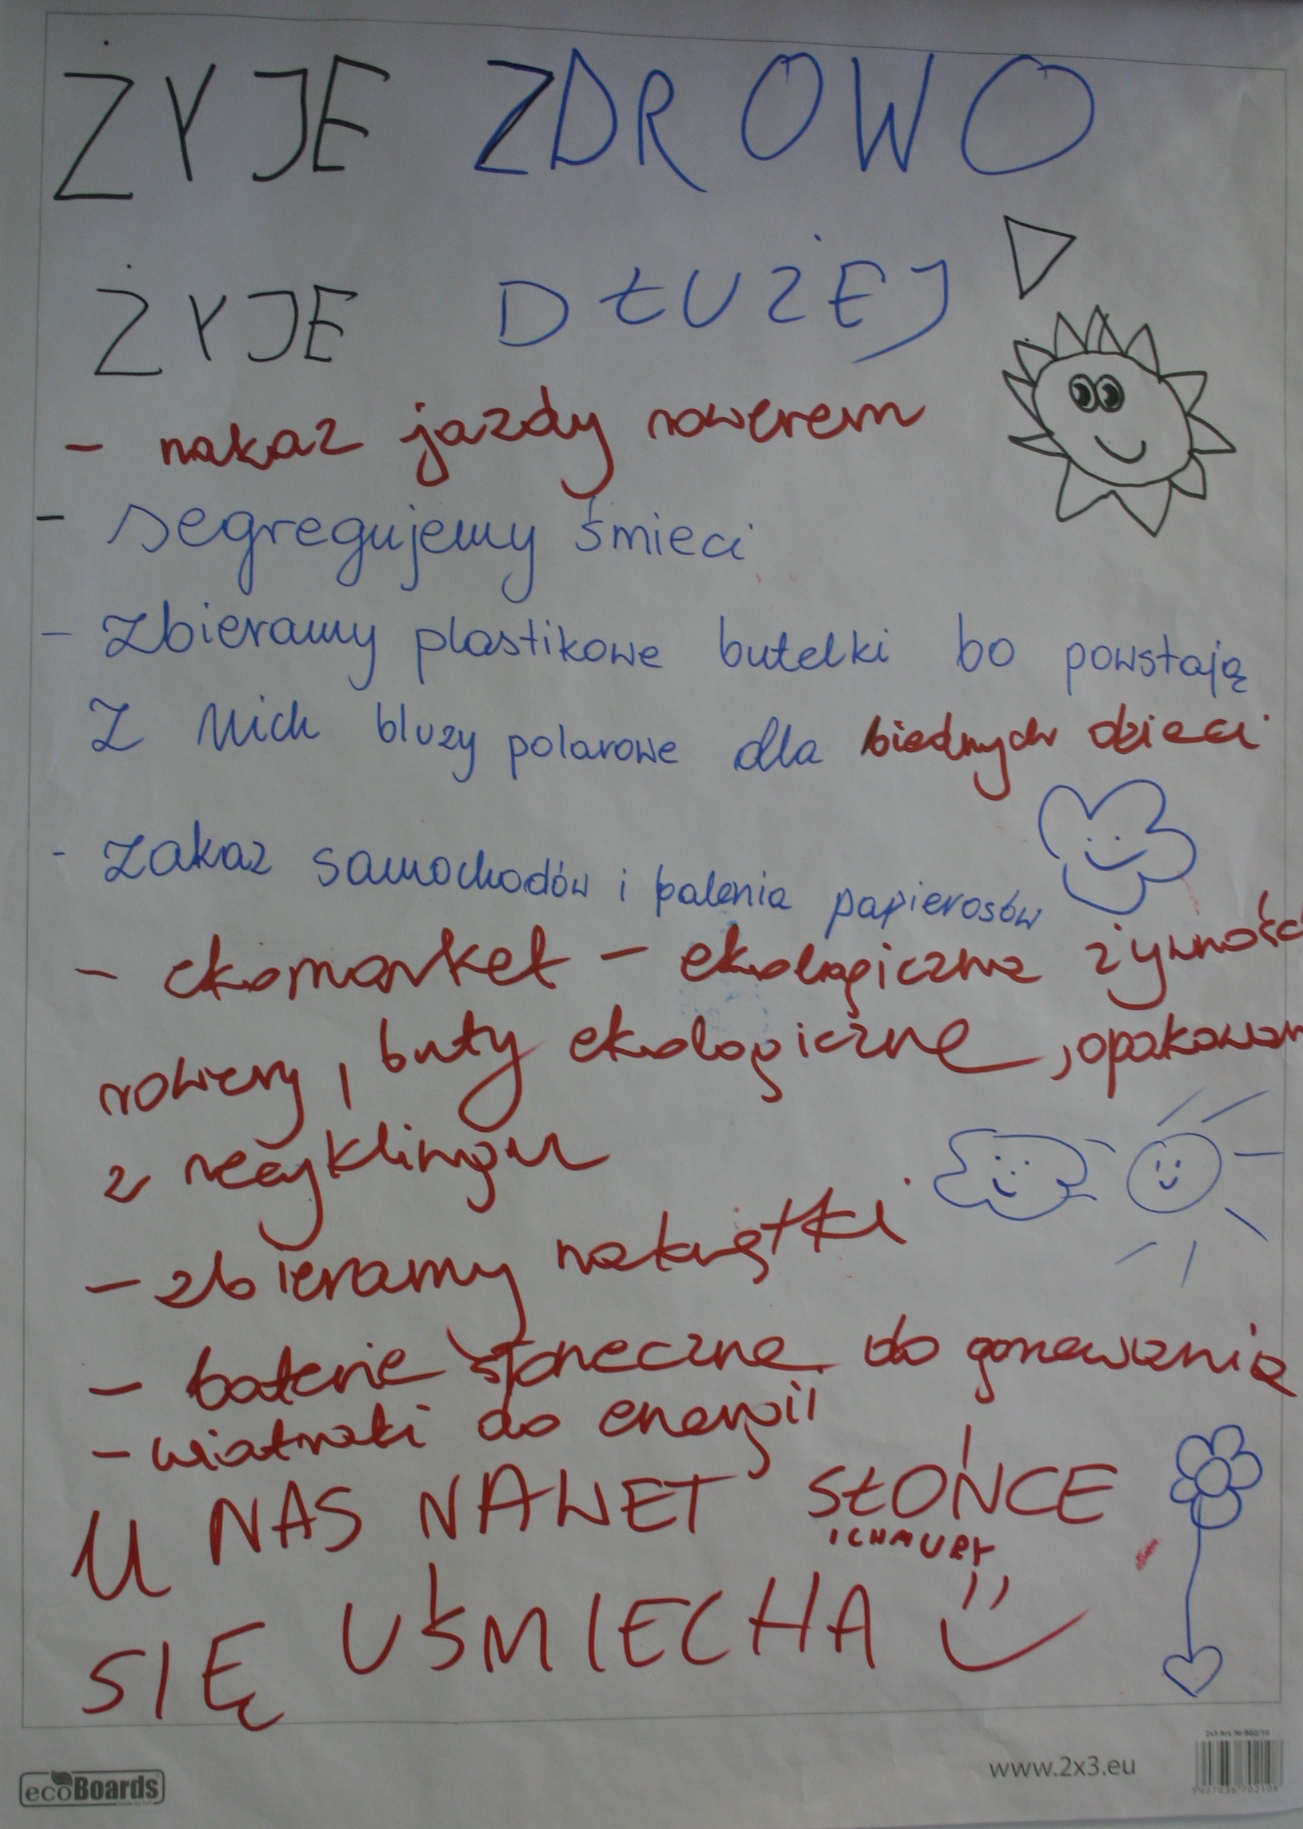 ŻYJE ZDROWO
ŻYJE DŁUŻEJ
- nakaz jazdy rowerem
- segregujemy śmieci
- Zbieramy plastikowe butelki bo powstają
Z nich bluzy polarowe dla biednych dzieci
- Zakaz samochodów i palenia papierosów
- ekomarket - ekologiczna żywność
rowery, buty ekologiczne, opakowan
z recyklingu
- zbieramy nakrętki
- baterie słoneczne do gorzewania
- wiatraki do energii
U NAS NAWET SŁOŃCE
I CHMURY
SIĘ UŚMIECHA
ecoBoards
www.2x3.eu